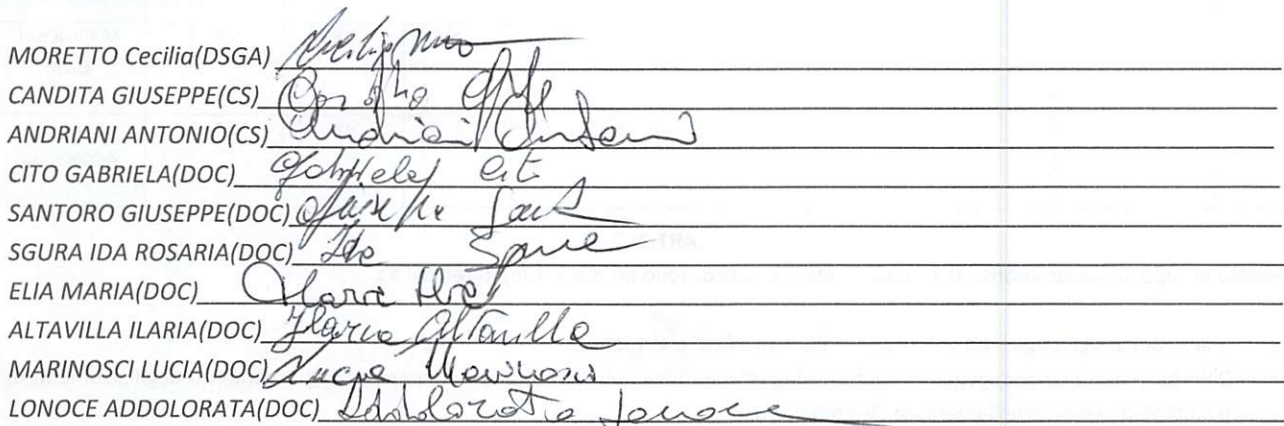 MORETTO Cecilia(DSGA)
CANDITA GIUSEPPE(CS)
ANDRIANI ANTONIO(CS) Andriani Antonio
CITO GABRIELA(DOC) Gabriela Cito
SANTORO GIUSEPPE(DOC) Giuseppe
SGURA IDA ROSARIA(DOC) Ida
ELIA MARIA(DOC) Maria Elia
ALTAVILLA ILARIA(DOC) Ilaria Altavilla
MARINOSCI LUCIA(DOC) Lucia Marinosci
LONOCE ADDOLORATA(DOC) Addolorata Lonoce